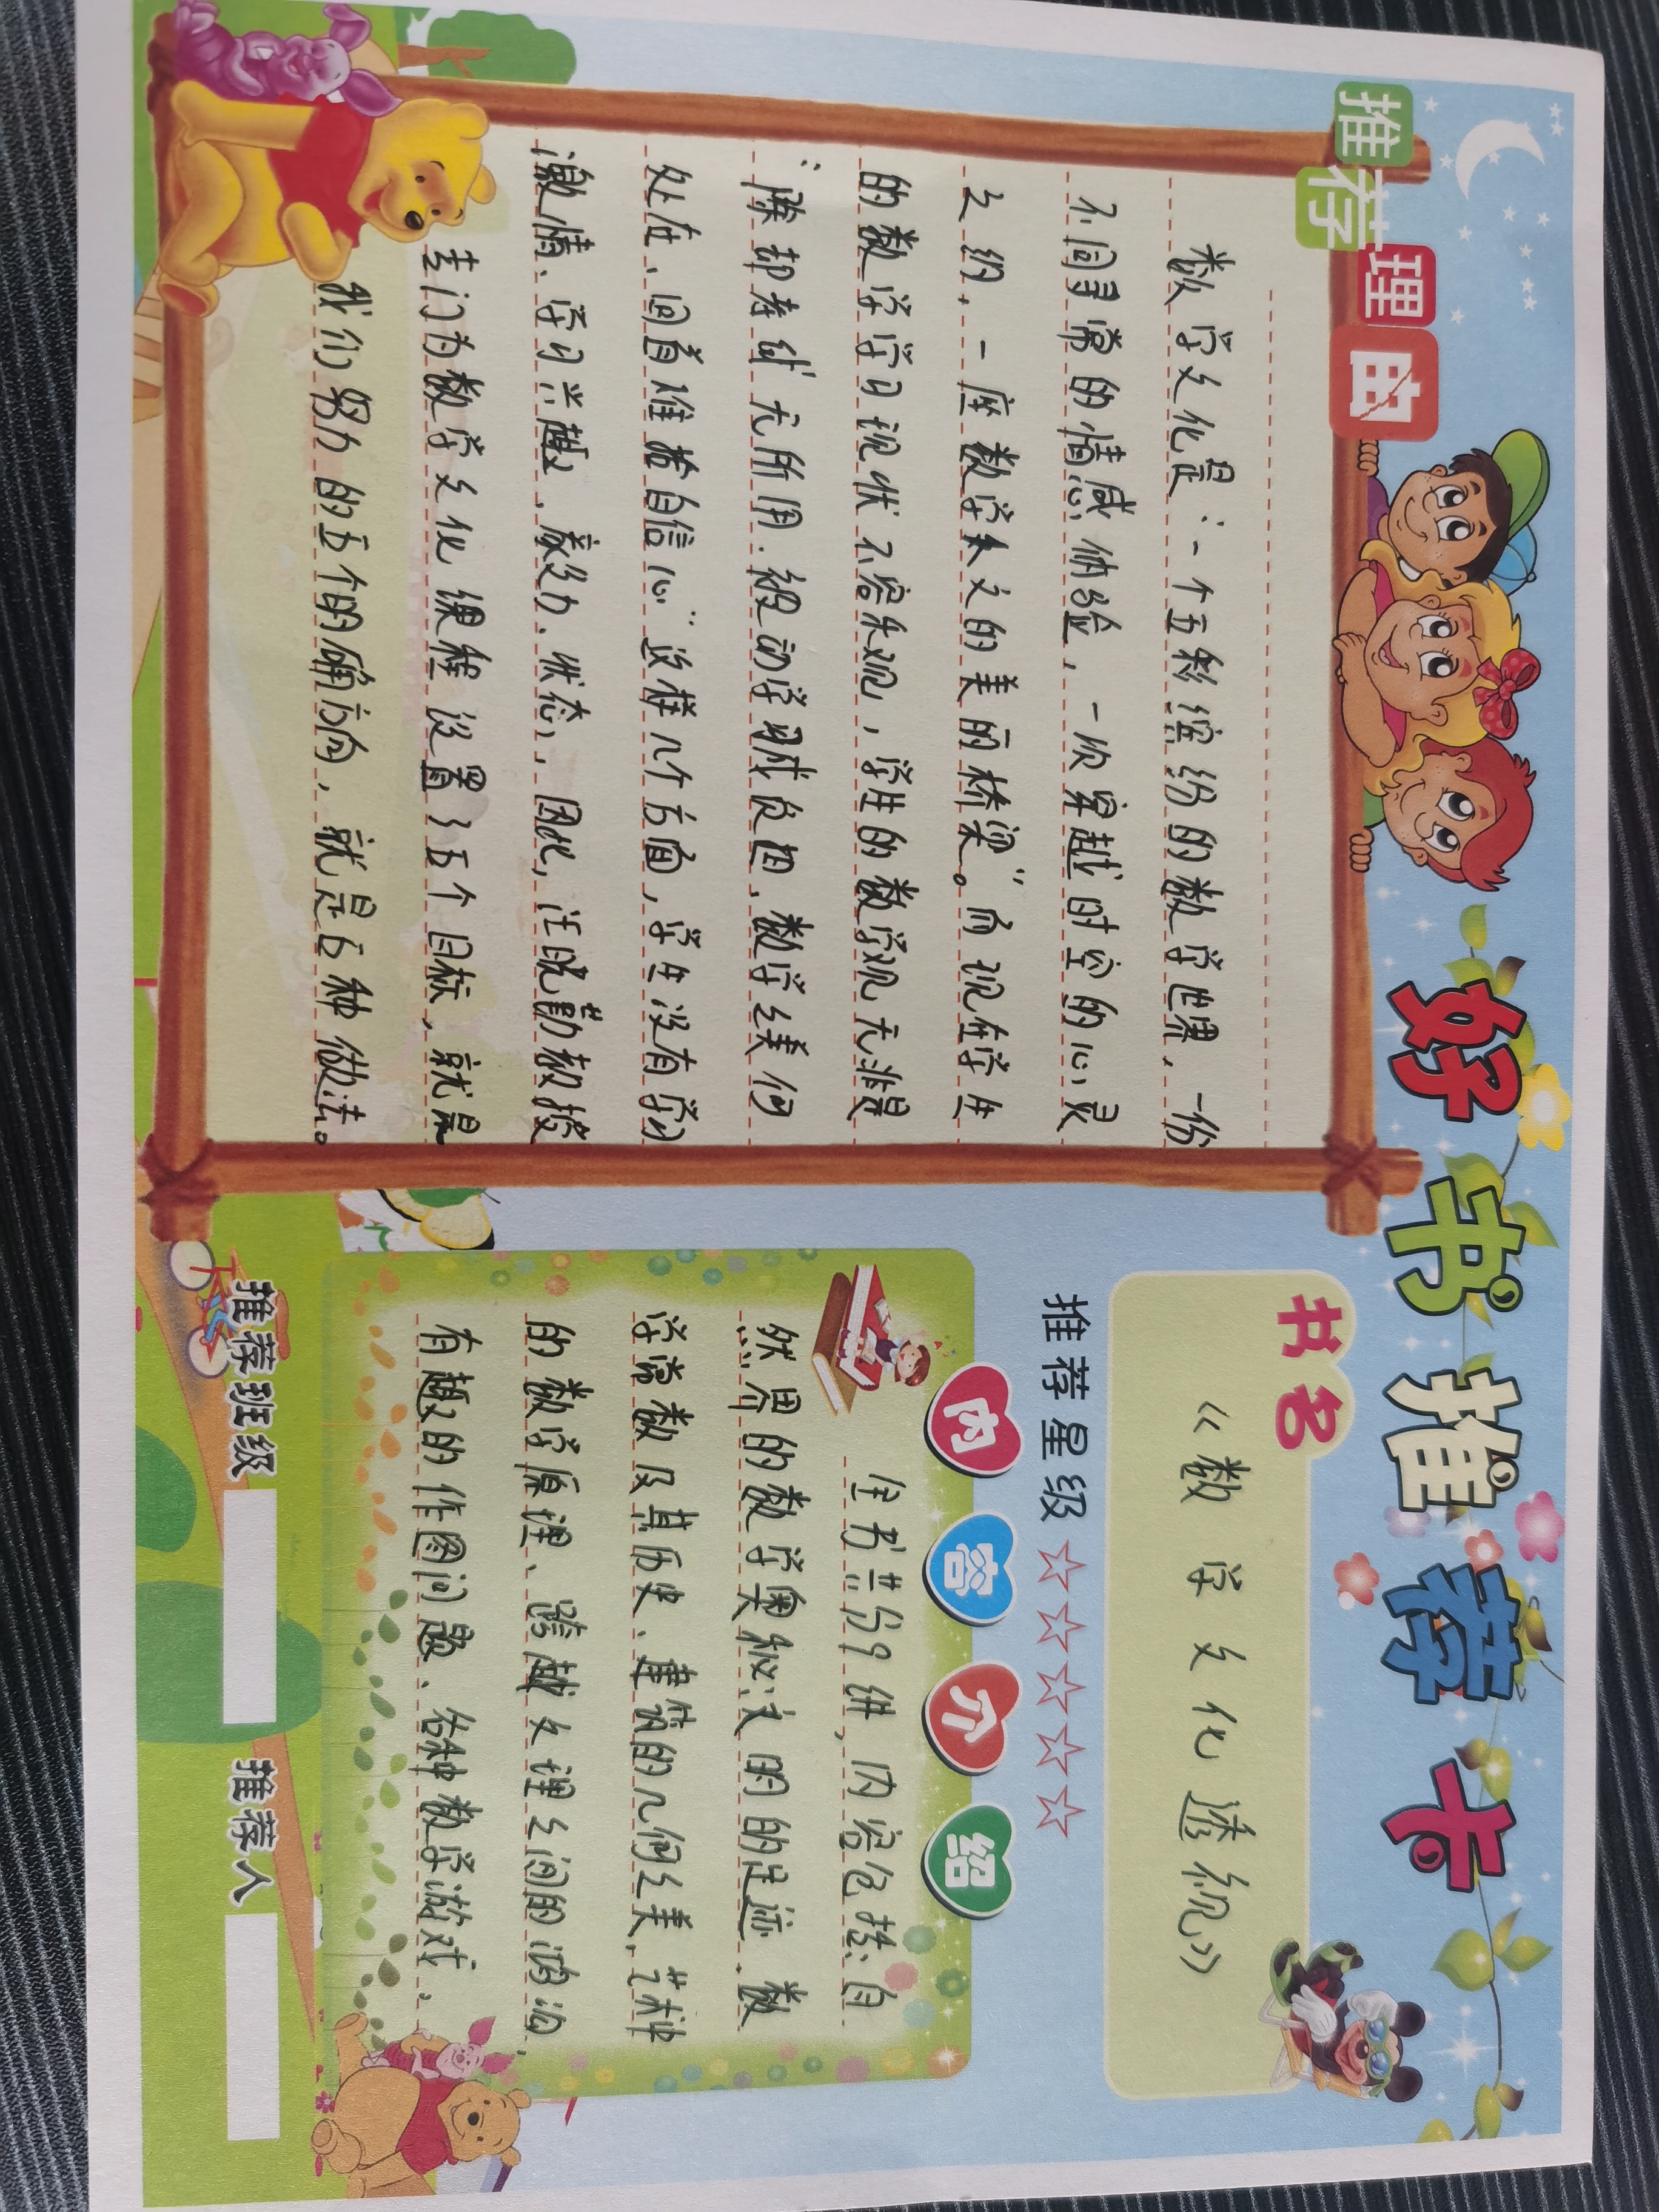 好书推荐卡
推荐理由
数学文化是:一个五彩缤纷的数学世界,一份
不同寻常的情感体验,一次穿越时空的心灵
之约,一座数学人文的美丽桥梁”。而现在学生
的数学学习现状不容乐观,学生的数学观无非是
“除却考试无所用.被动学习成负担,数学之美何
处在、回首难拾自信心”这样几个方面,学生没有学习
激情、学习兴趣、毅力、状态,因此,汪晓勤教授
专门为数学文化课程设置了五个目标,就是
我们努力的五个的确方向,就是五种做法。
书名
《数学文化透视》
推荐星级☆☆☆☆☆
内容介绍
全书共分9讲,内容包括:自
然界的数学奥秘、文明的足迹、数
学常数及其历史、建筑的几何之美、艺术中
的数学原理、跨越文理之间的鸿沟、
有趣的作图问题、各种数学游戏、
推荐班级
推荐人